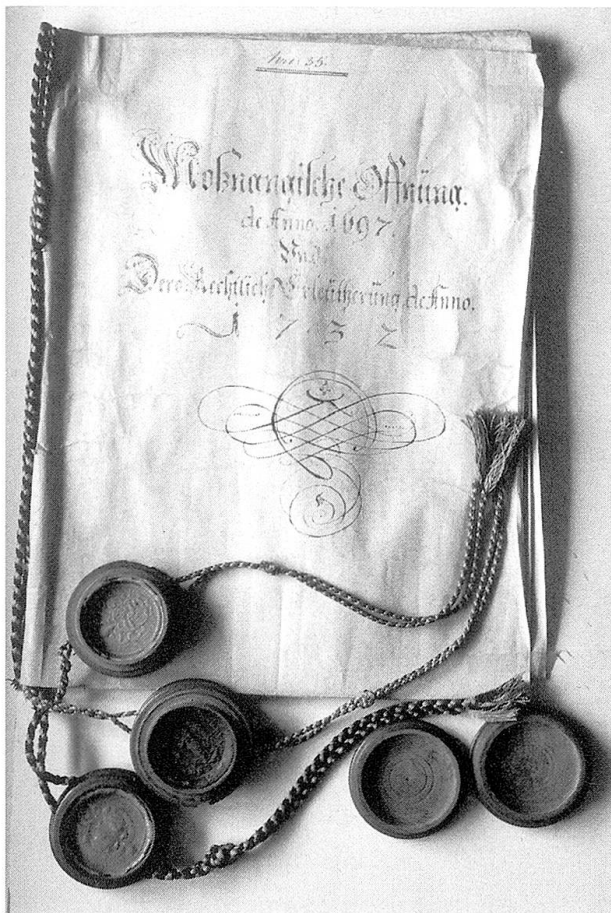 Nro: 35.
Moßnangische Offnüng.
de Anno. 1697.
Und
Dere Rechtliche Erleütherüng de Anno.
1732